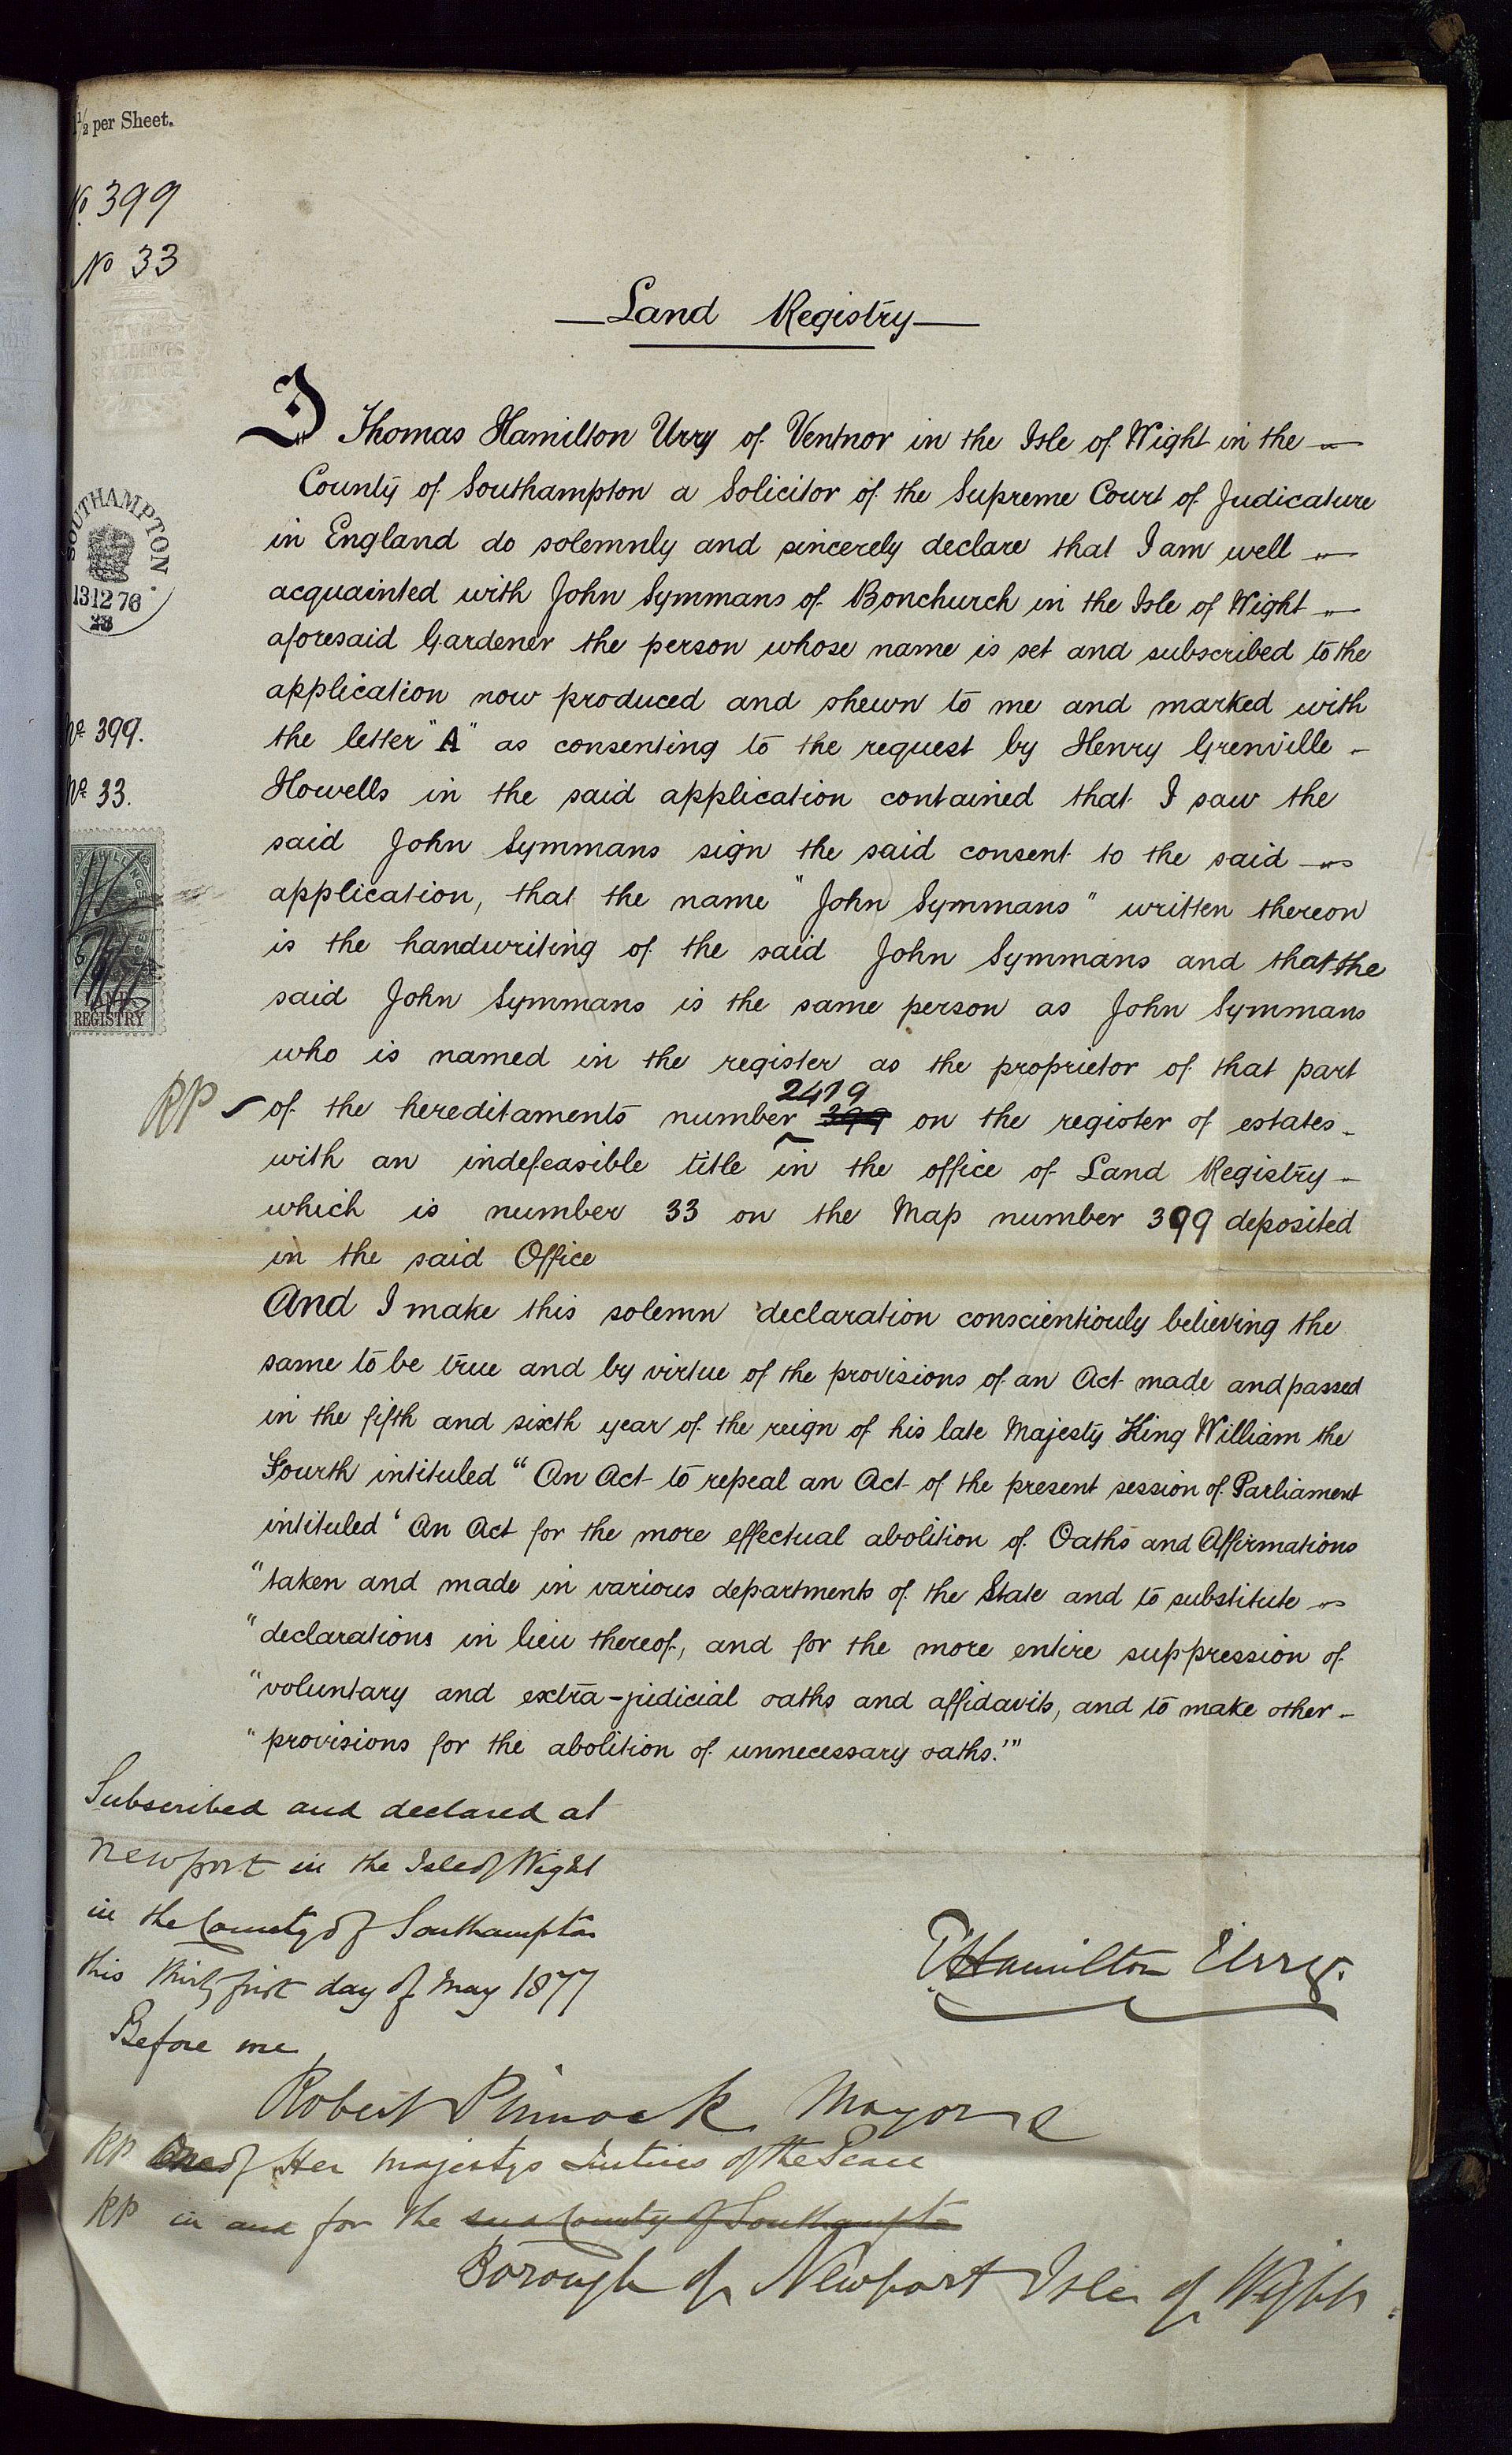 ½ per Sheet.
No. 399
No 33
TWO
SHILLINGS
SIXPENCE
Land Registry
I Thomas Hamilton Urry of Ventnor in the Isle of Wight in the
County of Southampton a Solicitor of the Supreme Court of Judicature
in England do solemnly and sincerely declare that I am well
acquainted with John Symmans of Bonchurch in the Isle of Wight
aforesaid Gardener the person whose name is set and subscribed to the
application now produced and shewn to me and marked with
the letter "A" as consenting to the request by Henry Grenville
Howells in the said application contained that I saw the
said John Symmans sign the said consent to the said
application, that the name "John Symmans" written thereon
is the handwriting of the said John Symmans and that the
said John Symmans is the same person as John Symmans
who is named in the register as the proprietor of that part
2419
of the hereditaments number 399 on the register of estates
with an indefeasible title in the office of Land Registry
which is number 33 on the Map number 399 deposited
in the said Office
And I make this solemn declaration conscientiouly believing the
same to be true and by virtue of the provisions of an Act made and passed
in the fifth and sixth year of the reign of his late Majesty King William the
Fourth intituled "An Act to repeal an Act of the present session of Parliament
intituled 'An Act for the more effectual abolition of Oaths and Affirmations
"taken and made in various departments of the State and to substitute
"declarations in lieu thereof, and for the more entire suppression of
"voluntary and extra-judicial oaths and affidavits, and to make other
"provisions for the abolition of unnecessary oaths.'"
SOUTHAMPTON
13 12 76
23
No 399.
No 33.
REGISTRY
RP
Subscribed and declared at
Newport in the Isle of Wight
in the County of Southampton
this thirty first day of May 1877
Before me
T Hamilton Urry.
Robert Pinnock Mayor
RP One of Her Majestys Justices of the Peace
RP in and for the said County of Southampton
Borough of Newport Isle of Wight.